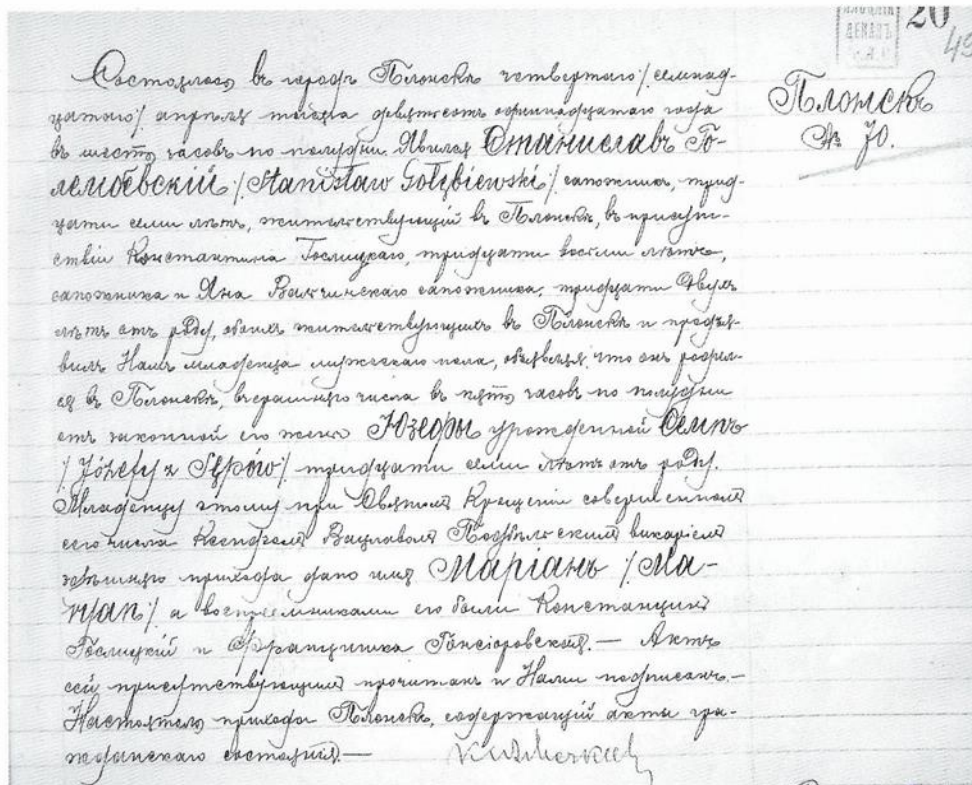 20
49
Плонскъ
№ 70.
Состоялось въ городѣ Плонскѣ четвертаго /: семнад-
цатаго :/ апрѣля тысяча девятьсотъ одиннадцатаго года
въ шесть часовъ по полудни. Явился Станиславъ Го-
лембёвскій /: Stanisław Gołębiewski :/ сапожникъ, трид-
цати семи лѣтъ, жительствующій въ Плонскѣ, въ присут-
ствіи Константина Гослицкаго, тридцати восьми лѣтъ,
сапожника и Яна сапожника, тридцати двухъ
лѣтъ отъ роду, обоихъ жительствующихъ въ Плонскѣ и предъя-
вилъ Намъ младенца мужескаго пола, объявляя, что онъ родил-
ся въ Плонскѣ, вчерашняго числа въ пять часовъ по полудни
отъ законной его жены Юзефы урожденной Семпъ
/: Józefy z Sępów :/ тридцати семи лѣтъ отъ роду.
Младенцу этому при Святомъ Крещеніи совершенномъ
сего числа Ксендзомъ Вацлавомъ викаріемъ
здѣшняго прихода дано имя Маріанъ /: Ma-
ryan :/ а воспріемниками его были
Гослицкій и Францишка Гонсіоровская. — Актъ
сей присутствующимъ прочитанъ и Нами подписанъ. —
Настоятель прихода Плонскъ, содержащій акты гра-
жданскаго состоянія. —